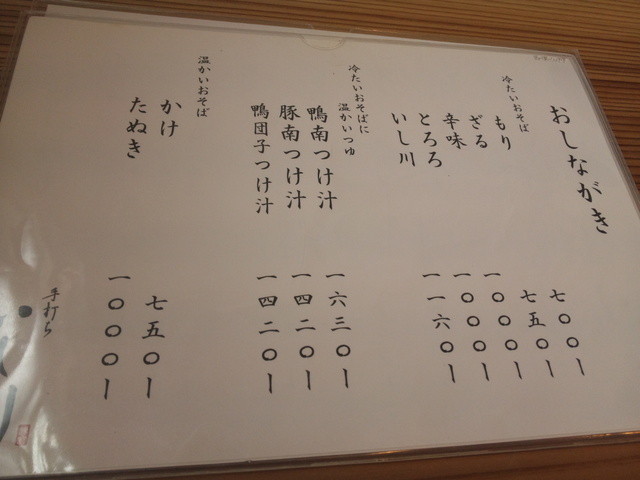 おしながき
冷たいおそば
もり 七〇〇ー
ざる 七五〇ー
辛味 一〇〇〇ー
とろろ 一〇〇〇ー
いし川 一一六〇ー
冷たいおそばに
温かいつゆ
鴨南つけ汁 一六三〇ー
豚南つけ汁 一四二〇ー
鴨団子つけ汁 一四二〇ー
温かいおそば
かけ 七五〇ー
たぬき 一〇〇〇ー
手打ち